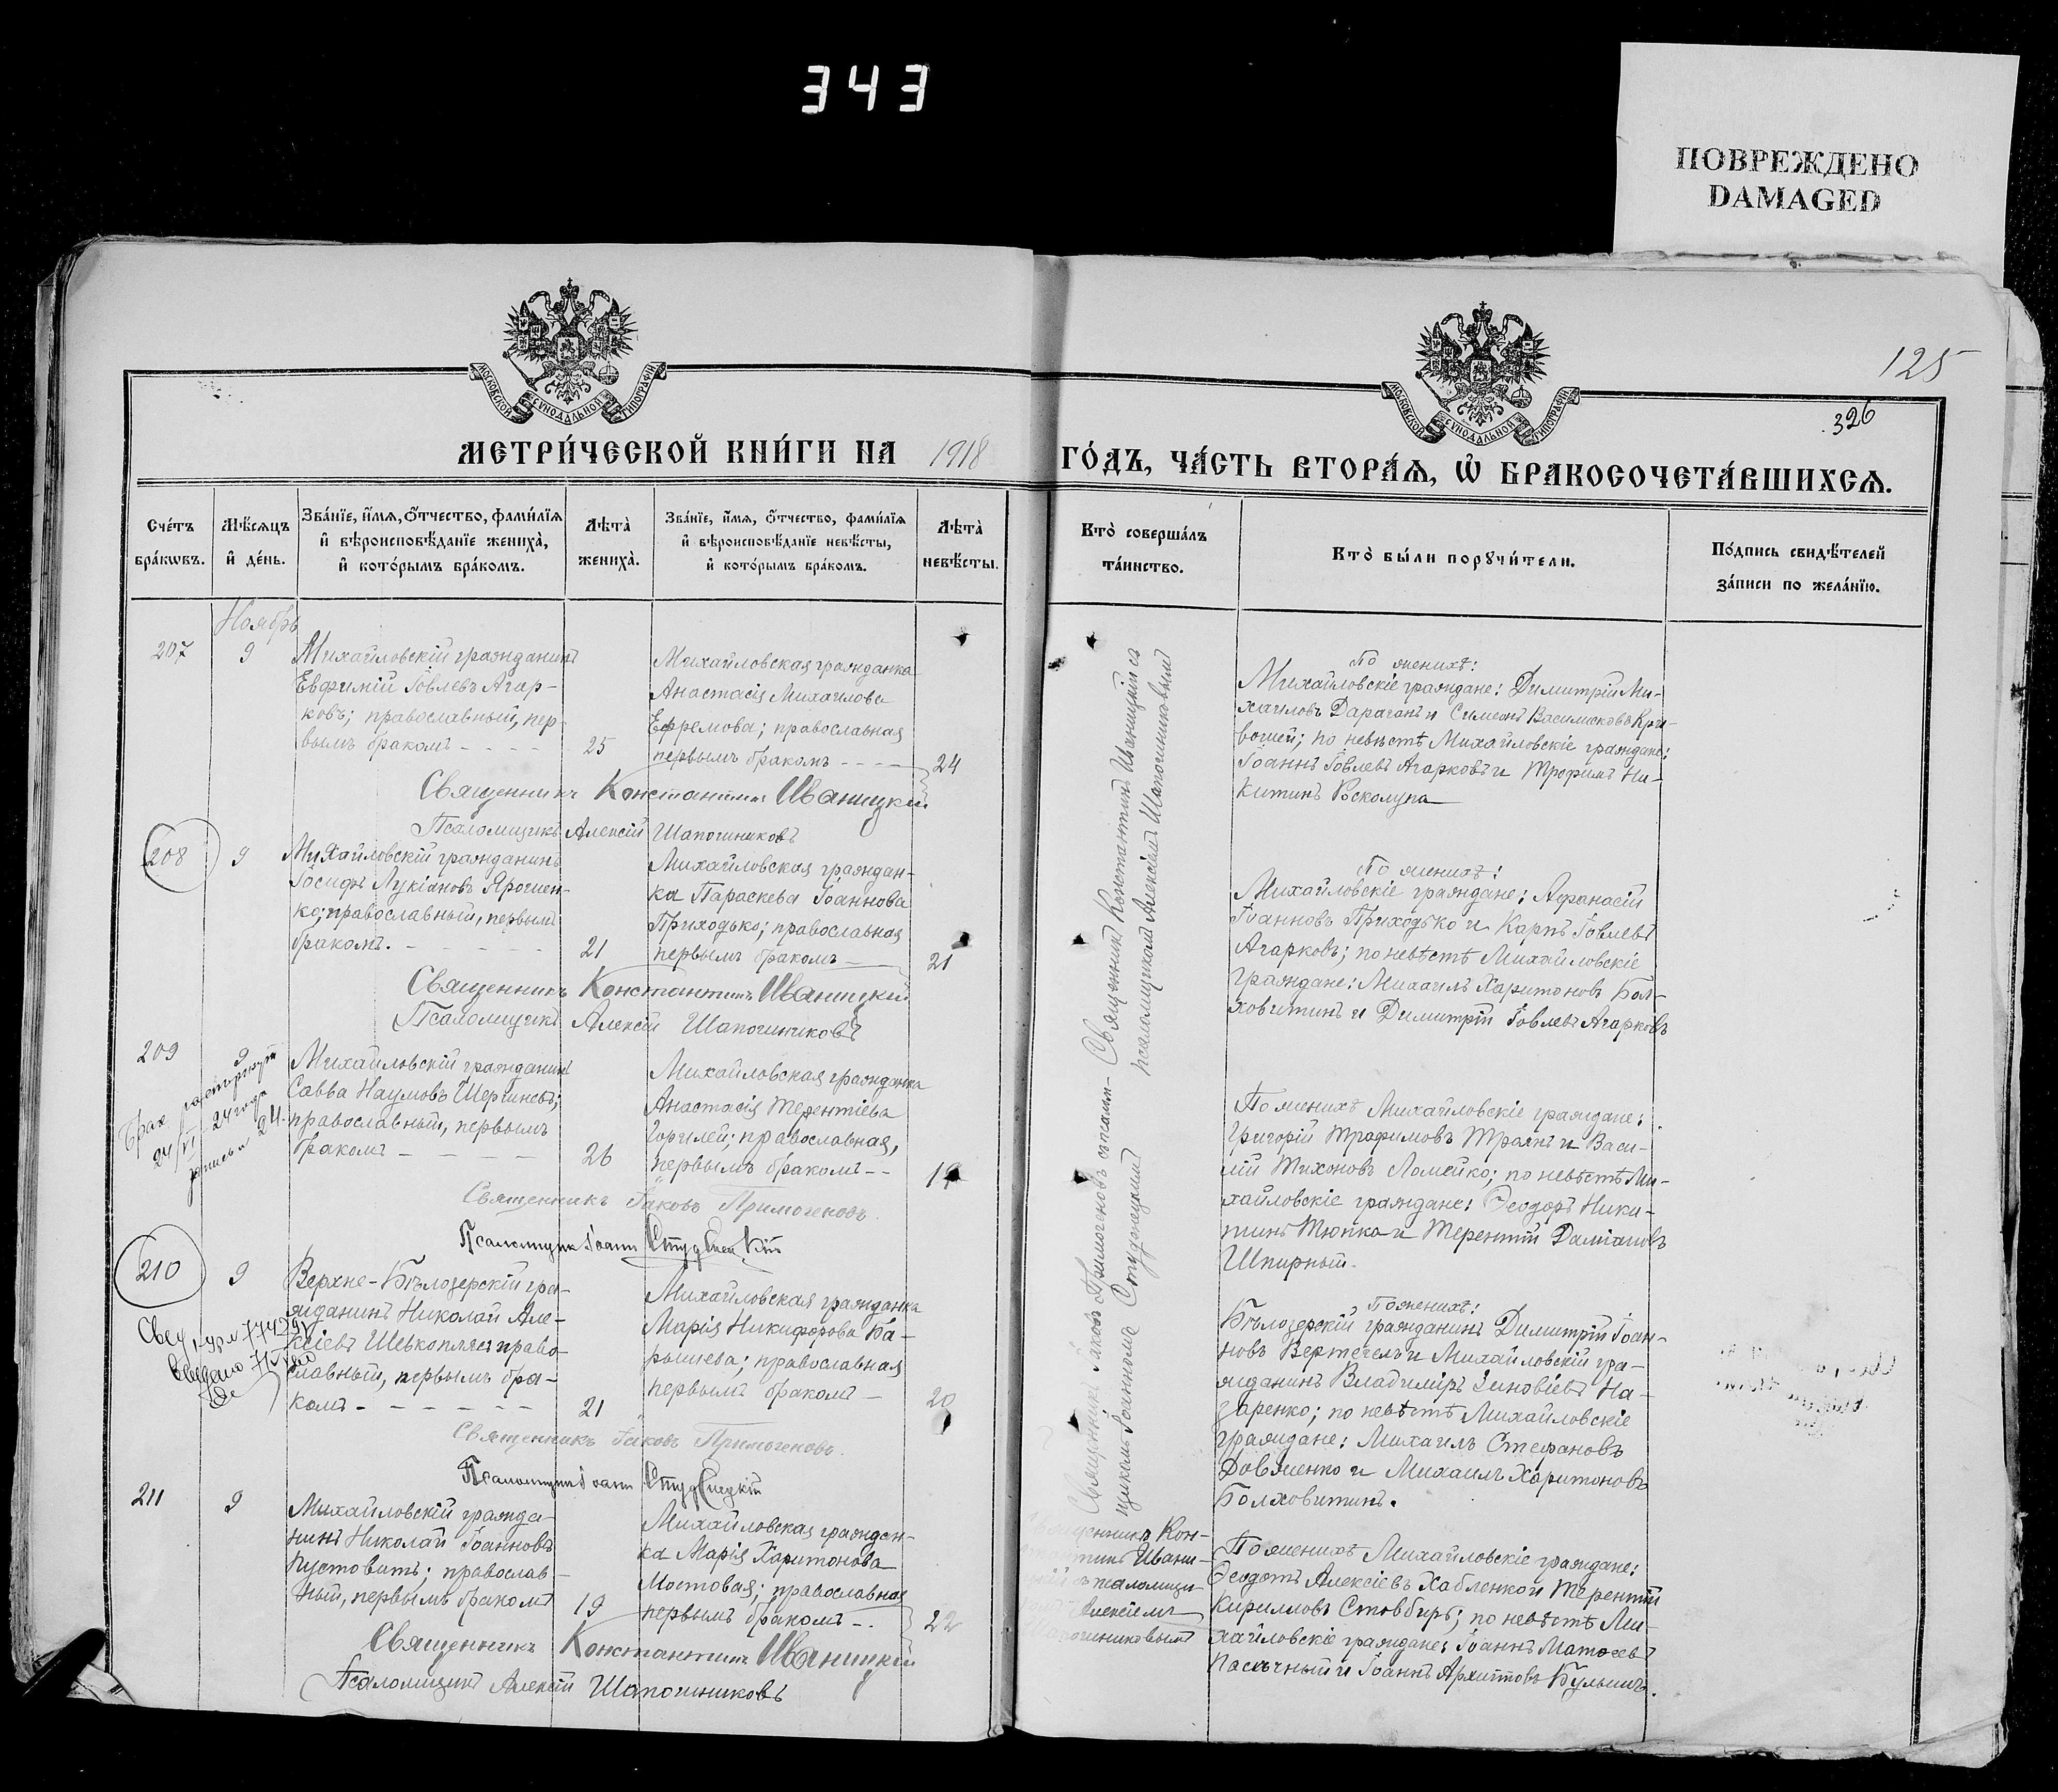 343
ПОВРЕЖДЕНО
DAMAGED
125
326
МОСКОВСКОЙ СѴНОДАЛЬНОЙ ТИПОГРАФІИ
МОСКОВСКОЙ СѴНОДАЛЬНОЙ ТИПОГРАФІИ
МЕТРИ́ЧЕСКОЙ КНИ́ГИ НА 1918 ГО́ДЪ, ЧА́СТЬ ВТОРА́Ѧ, Ѡ БРАКОСОЧЕТА́ВШИХСѦ.
Сче́тъ бра́кωвъ.
Мѣ́сѧцъ и де́нь.
Зва́нїе, и́мѧ, о́тчество, фами́лїѧ и вѣроисповѣ́данїе жениха̀, и кото́рымъ бра́комъ.
Лѣта̀ жениха̀.
Зва́нїе, и́мѧ, о́тчество, фами́лїѧ и вѣроисповѣ́данїе невѣ́сты, и кото́рымъ бра́комъ.
Лѣта̀ невѣ́сты.
Кто̀ соверша́лъ та́инство.
Кто̀ бы́ли порꙋчи́тели.
По́дпись свидѣ́телей за́писи по жела́нїю.
Ноябрь
207
9
Михайловскій гражданинъ
Евфимій Іовлевъ Агар-
ковъ; православный, пер-
вымъ бракомъ
25
Михайловская гражданка
Анастасія Михаилова
Ефремова; православная
первымъ бракомъ
24
По женихѣ:
Михайловскіе граждане: Димитрій Ми-
хаиловъ Дараганъ и Симеонъ Василисковъ Кри-
вошей; по невѣстѣ Михайловскіе граждане:
Іоаннъ Іовлевъ Агарковъ и Трофимъ Ни-
китинъ Росколупа
Священникъ Константинъ Иваницкій
Псаломщикъ Алексій Шапошниковъ
208
9
Михайловскій гражданинъ
Іосифъ Лукіановъ Ярошен-
ко; православный, первымъ
бракомъ.
21
Михайловская граждан-
ка Параскева Іоаннова
Приходько; православная
первымъ бракомъ
21
По женихѣ:
Михайловскіе граждане: Афанасій
Іоанновъ Приходько и Карпъ Іовлевъ
Агарковъ; по невѣстѣ Михайловскіе
граждане: Михаилъ Харитоновъ Бол-
ховитинъ и Димитрій Іовлевъ Агарковъ
Священникъ Константинъ Иваницкій
Псаломщикъ Алексій Шапошниковъ
209
9
Брак расторгнут
24/VI 24 года
запись № 24
Михайловскій гражданинъ
Савва Наумовъ Шершневъ;
православный, первымъ
бракомъ
26
Михайловская гражданка
Анастасія Терентіева
Горилей; православная,
первымъ бракомъ
По женихѣ Михайловскіе граждане:
Григорій Трофимовъ Траянъ и Васи-
лій Тихоновъ Ломейко; по невѣстѣ Ми-
хайловскіе граждане: Ѳеодоръ Ники-
тинъ Тюпка и Терентій Даміановъ
Шпирный.
Священникъ Іаковъ Примогеновъ
Псаломщикъ Іоаннъ Студенецкій
210
9
Верхне-Бѣлозерскій гра-
жданинъ Николай Але-
ксіевъ Шевкоплясъ право-
славный, первымъ бра-
комъ
21
Михайловская гражданка
Марія Никифорова Ба-
рышева; православная
первымъ бракомъ
20
По женихѣ:
Бѣлозерскій гражданинъ Димитрій Іоан-
новъ Вертегелъ и Михайловскій гра-
жданинъ Владиміръ Зиновіевъ На-
заренко; по невѣстѣ Михайловскіе
граждане: Михаилъ Стефановъ
Довженко и Михаилъ Харитоновъ
Болховитинъ.
Священникъ Іаковъ Примогеновъ.
Псаломщикъ Іоаннъ Студенецкій
211
9
Михайловскій гражда-
нинъ Николай Іоанновъ
Пустовитъ; православ-
ный, первымъ бракомъ
19
Михайловская граждан-
ка Марія Харитонова
Мостовая; православная
первымъ бракомъ
22
Священникъ Кон-
стантинъ Ивани-
цкій съ псаломщи-
комъ Алексіемъ
Шапошниковымъ
По женихѣ Михайловскіе граждане:
Ѳеодотъ Алексіевъ Хабленко и Терентій
Кирилловъ Стовбиръ; по невѣстѣ Ми-
хайловскіе граждане: Іоаннъ Матѳеевъ
Пасѣчный и Іоаннъ Архиповъ Кульшичъ.
Священникъ Константинъ Иваницкій
Псаломщикъ Алексій Шапошниковъ
Священникъ Константинъ Иваницкій съ
псаломщикомъ Алексіемъ Шапошниковымъ
Священникъ Іаковъ Примогеновъ съ псалом-
щикомъ Іоанномъ Студенецкимъ